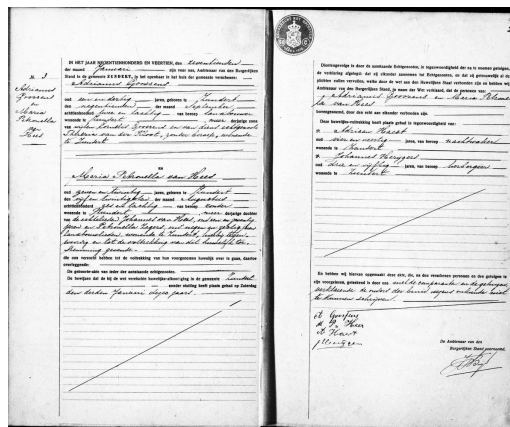 N: 3
Adrianus
Goossens
en
Maria
Petronella
van
Hees
IN HET JAAR NEGENTIENHONDERD EN VEERTIEN, den zeventienden
der maand Januari zijn voor ons, Ambtenaar van den Burgerlijken
Stand in de gemeente ZUNDERT, in het openbaar in het huis der gemeente verschenen:
Adrianus Goossens
oud een en dertig jaren, geboren te Zundert
den negentienden der maand September
achttienhonderd twee en tachtig van beroep landbouwer
wonende te Zundert meerderjarige zoon
van wijlen Goossens en van diens echtgenoote
van der zonder beroep, wonende
te Zundert
en
Maria Petronella van Hees
oud zeven en twintig jaren, geboren te Zundert
den vijf en twintigsten der maand Augustus
achttienhonderd zes en tachtig van beroep zonder
wonende te Zundert meerderjarige dochter
van de echtelieden Johannes van Hees, oud
jaren en Petronella Zegers, oud negen en zestig jaar
landbouwlieden, wonende te Zundert, hierbij tegen-
woordig en tot de voltrekking van dit huwelijk toe-
stemming gevende.
die ons verzocht hebben tot de voltrekking van hun voorgenomen huwelijk over te gaan, daartoe
overleggende:
De geboorte-akten van ieder der aanstaande echtgenooten.
De bewijzen dat de bij de wet vereischte huwelijks-afkondiging in de gemeente Zundert
zonder stuiting heeft plaats gehad op Zaterdag
den derden Januari dezes jaars.
Dientengevolge is door de aanstaande Echtgenooten, in tegenwoordigheid der na te noemen getuigen,
de verklaring afgelegd: dat zij elkander aannemen tot Echtgenooten, en dat zij getrouwelijk al de
plichten zullen vervullen, welke door de wet aan den Huwelijken Staat verbonden zijn en hebben wij
in naam der Wet verklaard, dat de personen van:
Adrianus Goossens en Maria Petronel-
la van Hees
bovengenoemd, door den echt aan elkander verbonden zijn.
Deze huwelijks-voltrekking heeft plaats gehad in tegenwoordigheid van:
Adriaan Havert
oud vier en veertig jaren, van beroep nachtwaker
wonende te Zundert
Johannes
oud drie en vijftig jaren, van beroep
wonende te Zundert
En hebben wij hiervan opgemaakt deze akte, die, na den verschenen personen en den getuigen te
zijn voorgelezen, geteekend is door ons met de comparante en de getuigen,
verklarende de moeder der bruid wegens onkunde niet
te kunnen schrijven.
A Goossens
M P v Hees
A Havert
De Ambtenaar van den
Burgerlijken Stand voornoemd,